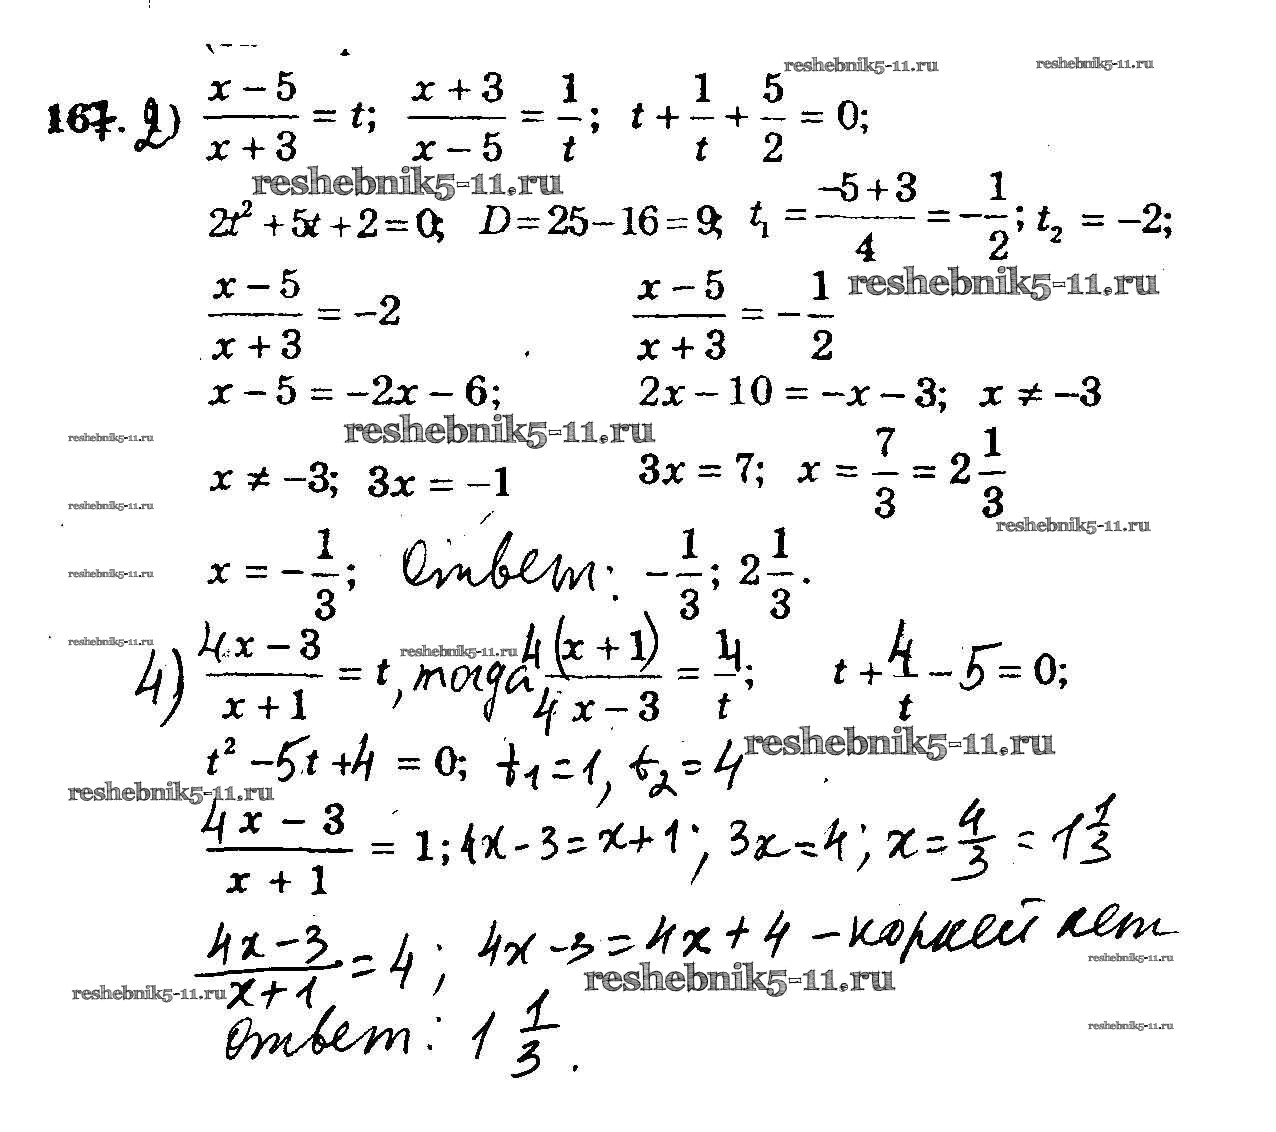 reshebnik5-11.ru reshebnik5-11.ru
167. 2) (x − 5)/(x + 3) = t; (x + 3)/(x − 5) = 1/t; t + 1/t + 5/2 = 0;
reshebnik5-11.ru
2t² + 5t + 2 = 0; D = 25 − 16 = 9; t₁ = (−5 + 3)/4 = −1/2; t₂ = −2;
reshebnik5-11.ru
(x − 5)/(x + 3) = −2 (x − 5)/(x + 3) = −1/2
x − 5 = −2x − 6; 2x − 10 = −x − 3; x ≠ −3
reshebnik5-11.ru reshebnik5-11.ru
x ≠ −3; 3x = −1 3x = 7; x = 7/3 = 2 1/3
reshebnik5-11.ru reshebnik5-11.ru
x = −1/3; Ответ: −1/3; 2 1/3.
reshebnik5-11.ru
reshebnik5-11.ru reshebnik5-11.ru
4) (4x − 3)/(x + 1) = t, тогда 4(x + 1)/(4x − 3) = 4/t; t + 4/t − 5 = 0;
reshebnik5-11.ru
t² − 5t + 4 = 0; t₁ = 1, t₂ = 4
reshebnik5-11.ru
(4x − 3)/(x + 1) = 1; 4x − 3 = x + 1; 3x = 4; x = 4/3 = 1 1/3
(4x − 3)/(x + 1) = 4; 4x − 3 = 4x + 4 − корней нет
reshebnik5-11.ru reshebnik5-11.ru reshebnik5-11.ru
Ответ: 1 1/3.
reshebnik5-11.ru